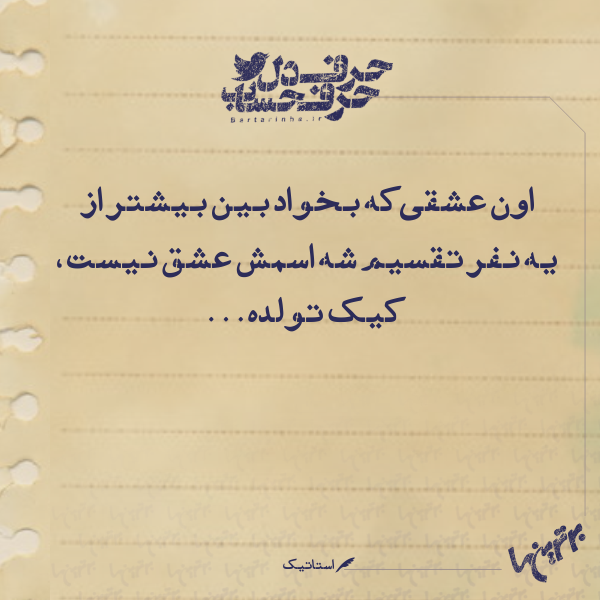 حرف دل
حرف حساب
Bartarinha.ir
اون عشقی که بخواد بین بیشتر از
یه نفر تقسیم شه اسمش عشق نیست،
کیک تولده...
استاتیک
برترین‌ها